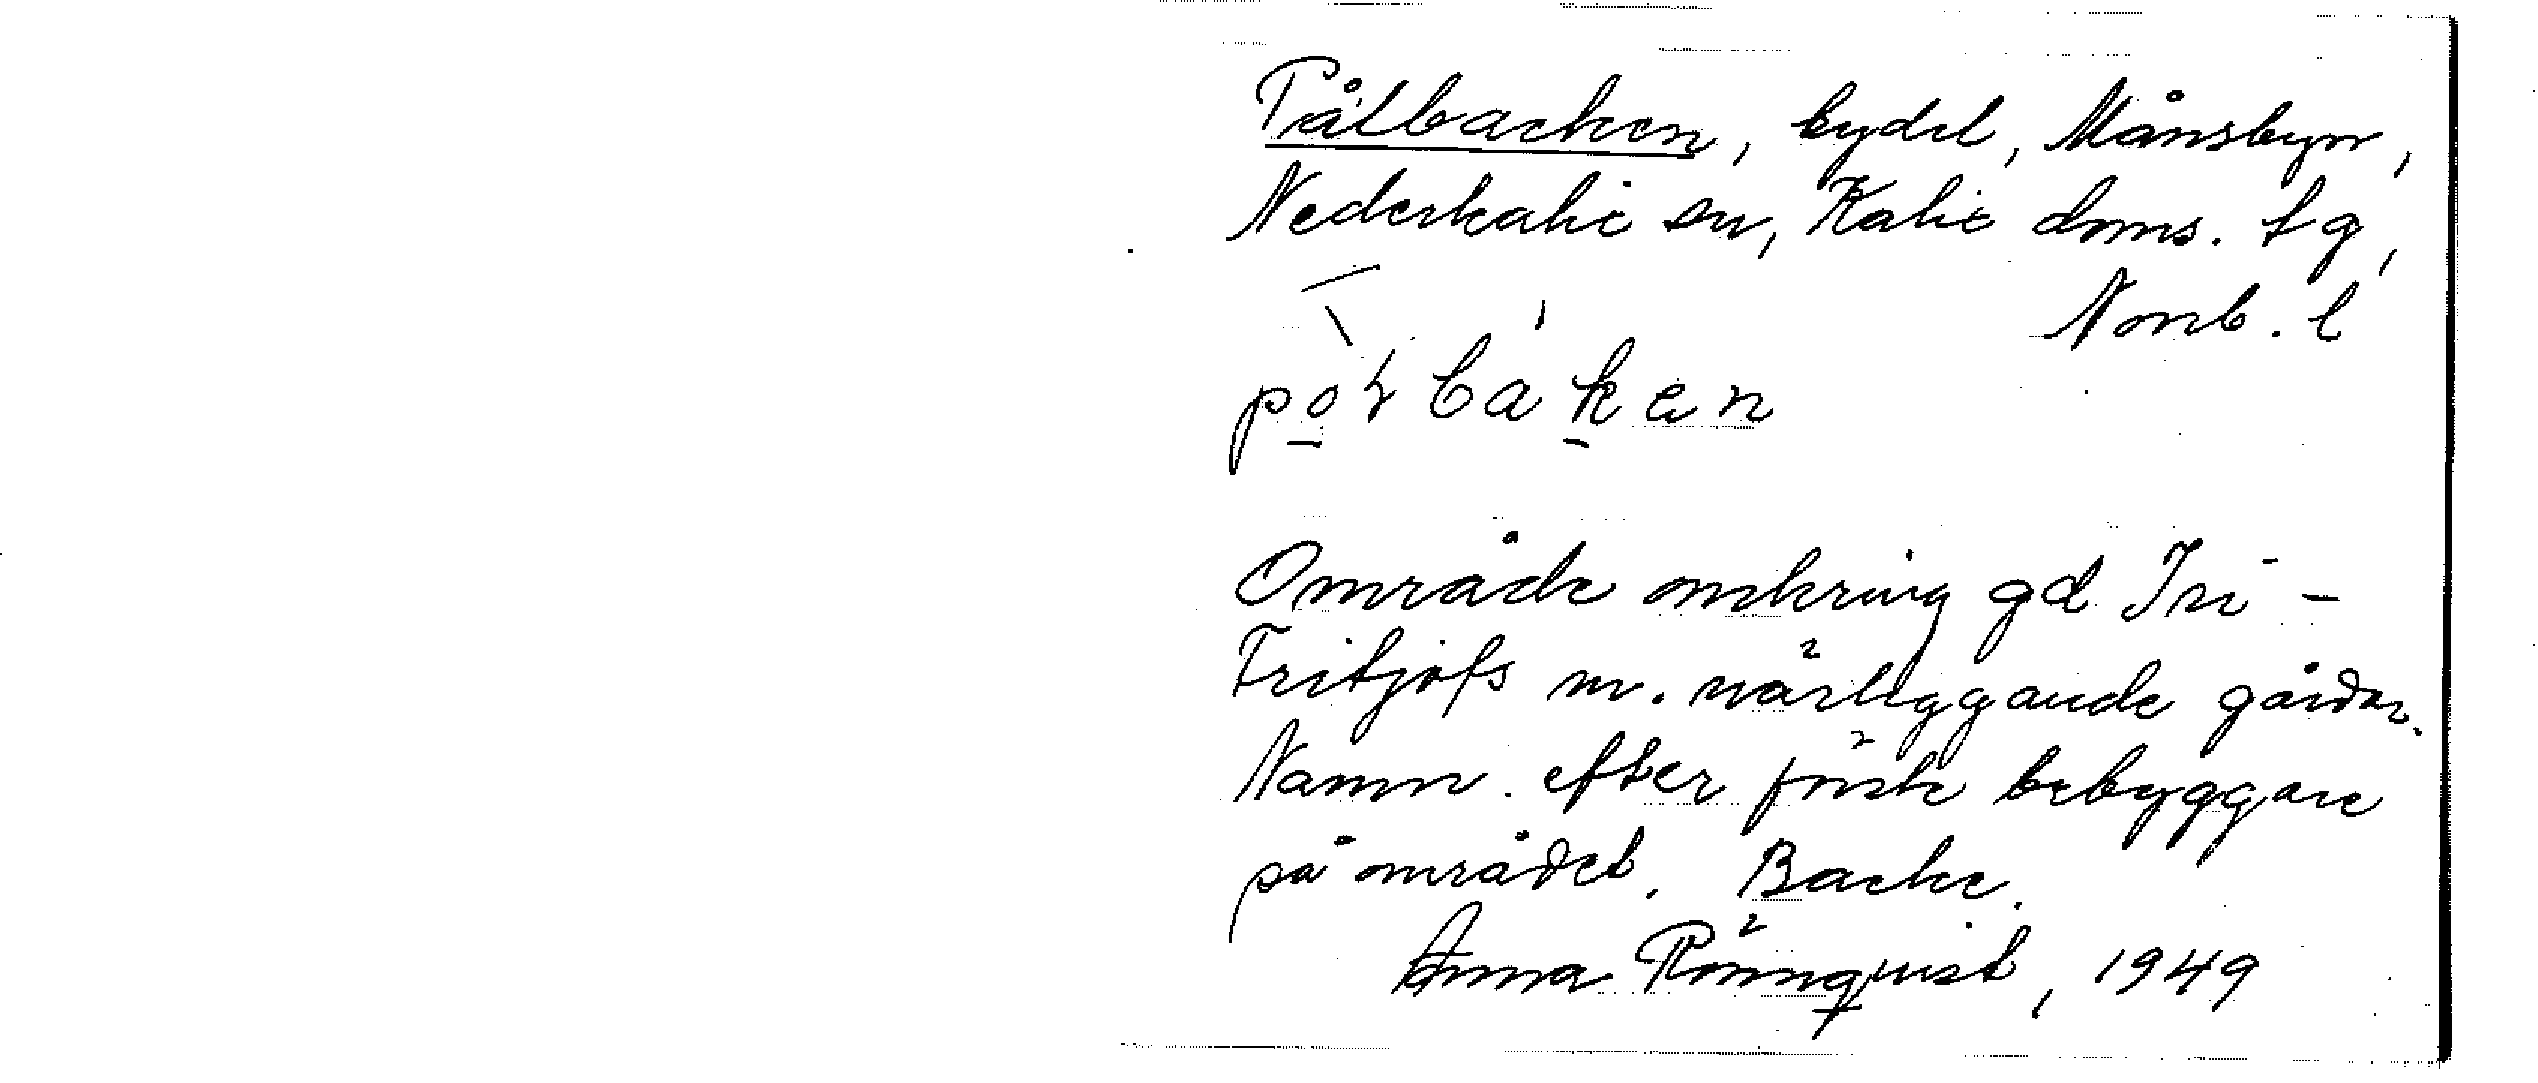 Pålbacken, bydel, Månsbyn,
Nederkalix sn, Kalix doms. tg,
Norrb. l
Område omkring gd Iri-
Fritjofs m. närliggande gårdar.
Namn. efter förste bebyggare
på området. Backe.
Anna Rönnqvist, 1949